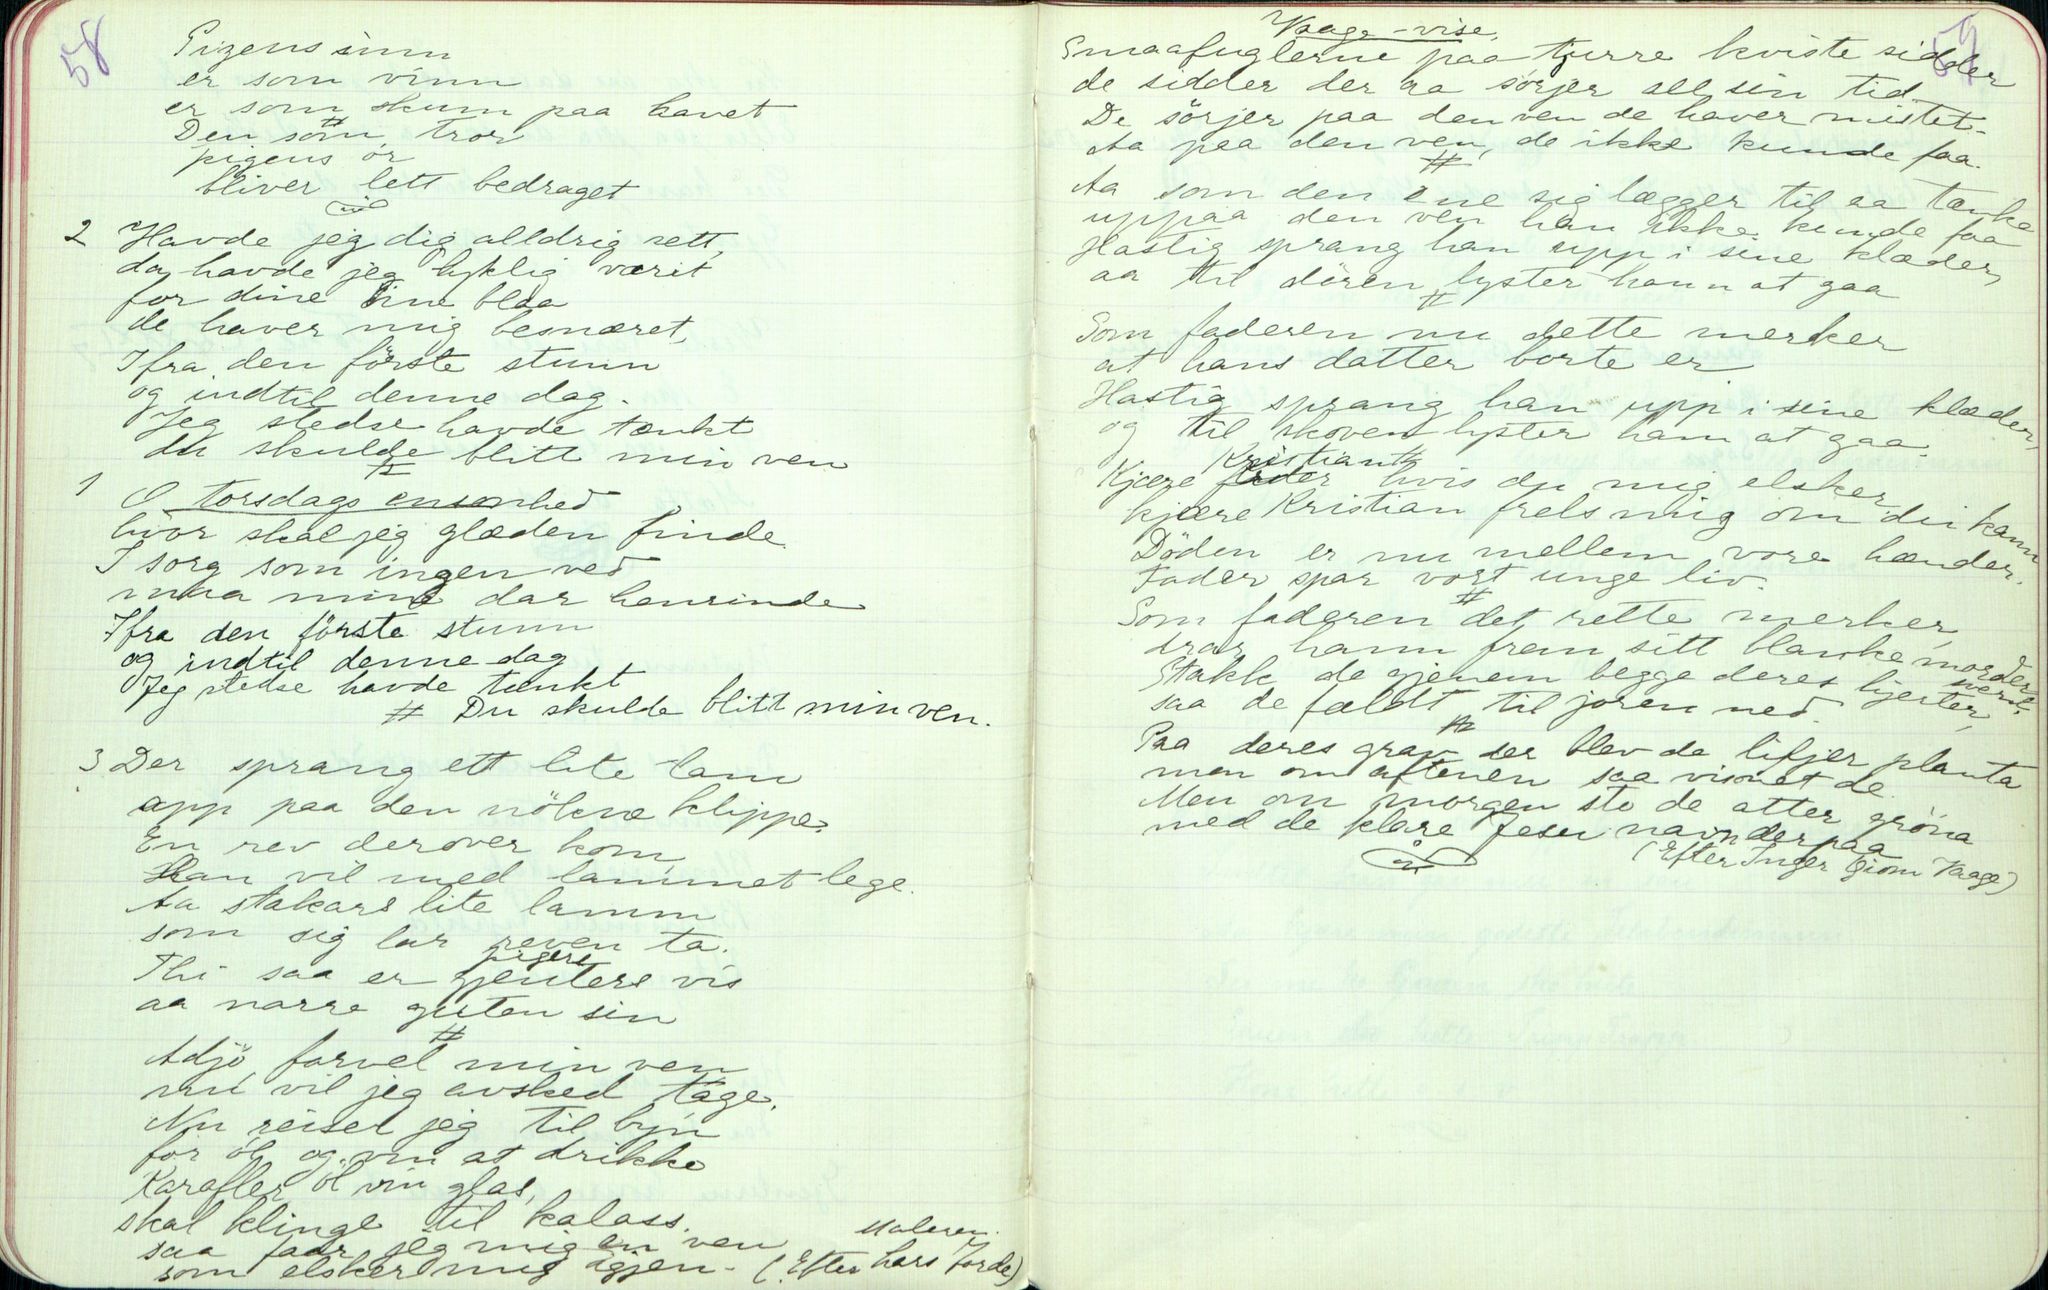 58
Pigens sinn
er som vinn
er som skum paa havet
Den som tror
pigens ór
bliver lett bedraget
2 Havde jeg dig alldrig sett,
da havde jeg lyklig værit
for dine öine blaa
de haver mig besnæret,
Ifra den förste stunn
og indtil denne dag.
Jeg stedse havde tænkt
du skulde blitt min ven
#
1 O torsdags ensomhed
hvor skal jeg glæden finde.
I sorg som ingen ved
maa mine dar henrinde
Ifra den förste stunn
og indtil denne dag
Jeg stedse havde tænkt
# Du skulde blitt min ven.
3 Der sprang ett lite lam
opp paa den nökne klippe.
En rev derover kom,
Han vil med lammet lege.
Aa stakars lite lamm
som sig lar reven ta.
pigere
Thi saa er gjenters vis
aa narre guten sin
#
Adjö, farvel min ven
nu vil jeg avsked tage.
Nu reiser jeg til byn
for öl og vin at drikke
Karafler öl vin glas,
skal klinge til kalass.
saa faar jeg mig en ven
som elsker mig igjen. - (Efter Lars Jorde)
Maleren
57
Vaage-vise.
Smaafuglerne paa turre kviste sidder
de sidder der aa sörjer all sin tid
De sörjer paa den ven de haver mistet-
Aa paa den ven, de ikke kunde faa.
#
Aa som den ene sig lægger til aa tænke
uppaa den ven han ikke kunde faa
Hastig sprang han upp i sine klæder,
aa til dören lyster hann at gaa
#
Som faderen nu dette merker
at hans datter borte er
Hastig sprang han upp i sine klæder,
og til skoven lyster ham at gaa.
Kristian #
Kjære fader hvis du mig elsker
kjære Kristian frels mig om du kann
Döden er nu mellem vore hænder.
Fader spar vort unge liv.
#
Som faderen det rette merker,
drar hann frem sitt blanke morder
sverd.
Stakk de gjenem begge deres hjerter,
saa de fældt til joren ned.
#
Paa deres grav der blev da lifjer planta
men om aftenen saa visnet de.
Men om morgen sto de atter gröna
med de klare Jesu navn derpaa
(Efter Inger Gjom Vaage)